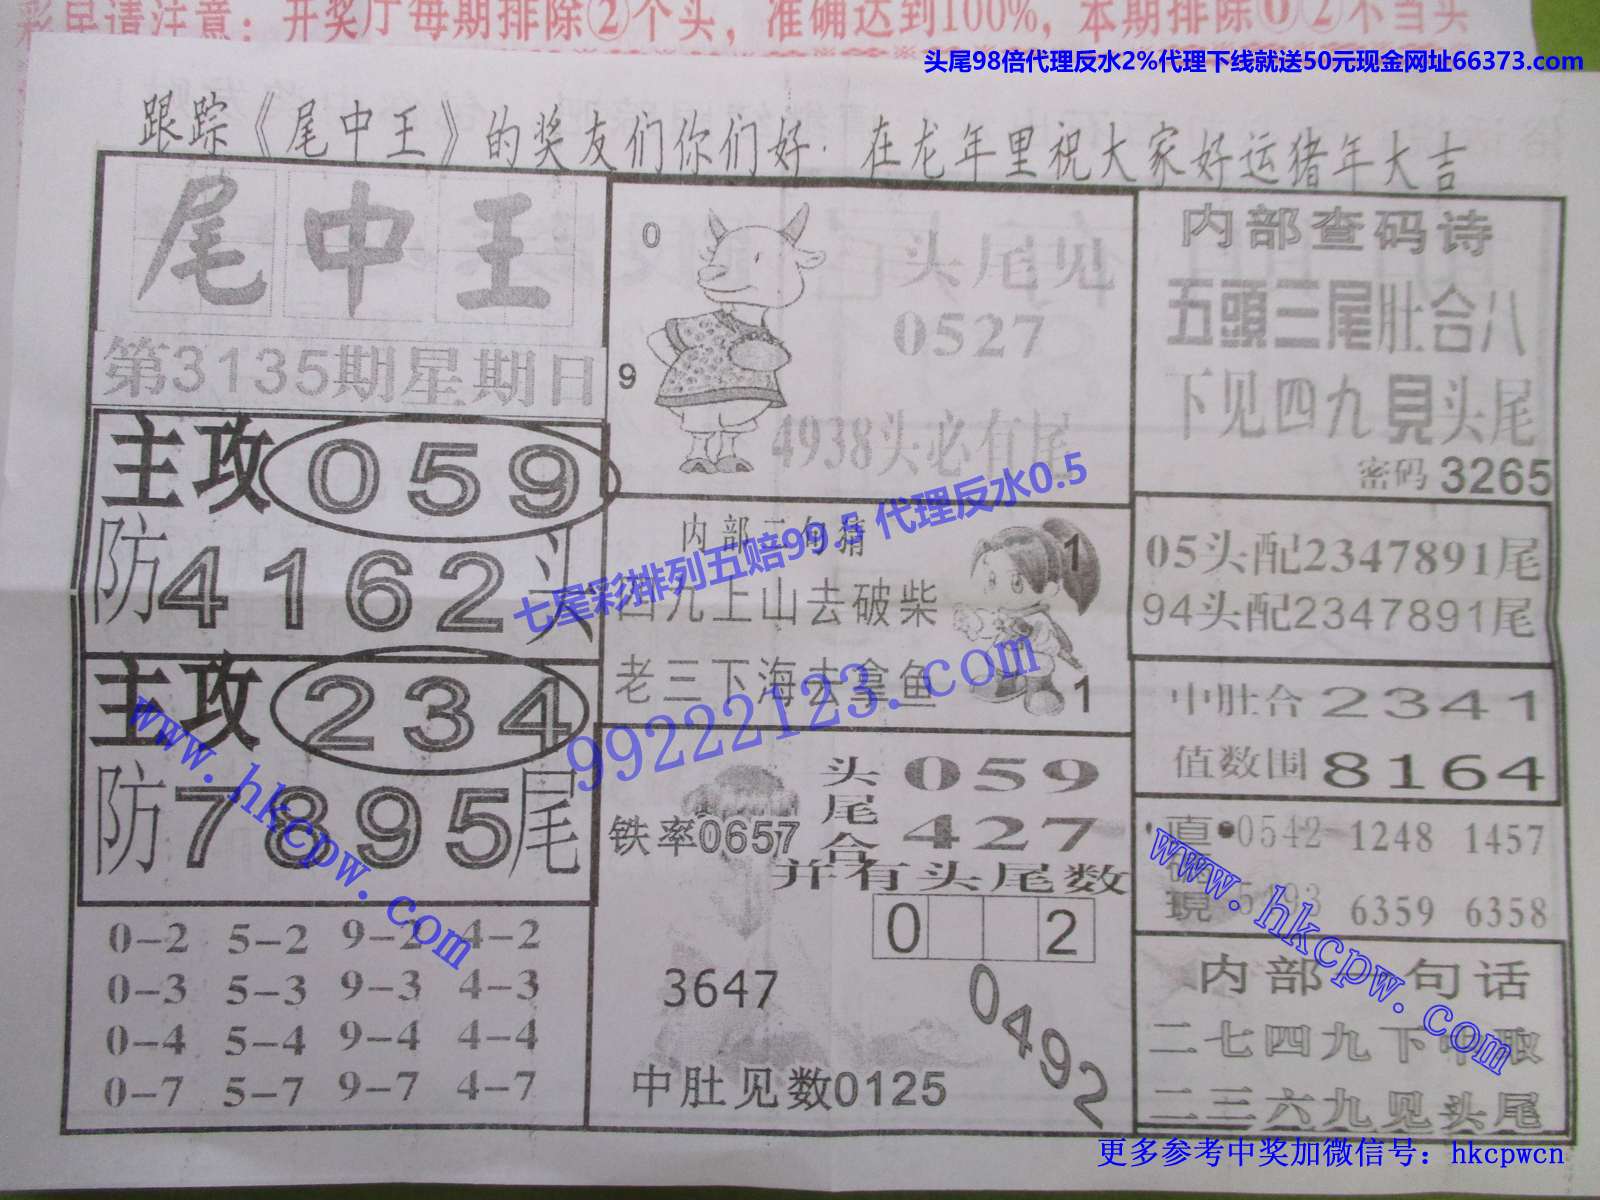 彩民请注意：开奖厅每期排除②个头，准确达到100%，本期排除0②不当头
头尾98倍代理反水2%代理下线就送50元现金网址66373.com
跟踪《尾中王》的奖友们你们好·在龙年里祝大家好运猪年大吉
尾中王
第3135期星期日
主攻059
防4162头
主攻234
防7895尾
0-2 5-2 9-2 4-2
0-3 5-3 9-3 4-3
0-4 5-4 9-4 4-4
0-7 5-7 9-7 4-7
0
9
头尾见
0527
4938头必有尾
内部二句猜
四九上山去破柴
老三下海去拿鱼
1
1
七星彩排列五赔99.5 代理反水0.5
99222123.com
铁率0657
头尾合
059
427
并有头尾数
0 2
3647
0492
中肚见数0125
内部查码诗
五頭三尾肚合八
下见四九見头尾
密码 3265
05头配2347891尾
94头配2347891尾
中肚合2341
值数围8164
0542 1248 1457
6359 6358
内部一句话
二七四九下
二三六九见头尾
www.hkcpw.com
www.hkcpw.com
更多参考中奖加微信号：hkcpwcn